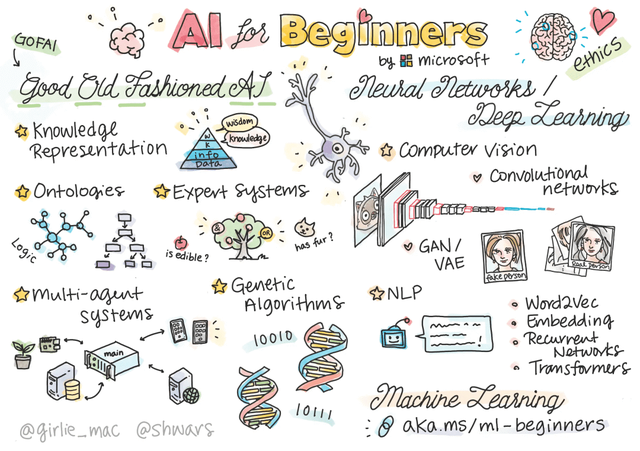 AI for Beginners
by microsoft
GOFAI
ethics
Good Old Fashioned AI
Knowledge
Representation
wisdom
knowledge
W
K
info
Data
Ontologies
Logic
Expert Systems
OR
is edible?
has fur?
Multi-agent
systems
main
Genetic
Algorithms
10010
10111
Neural Networks /
Deep Learning
Computer Vision
Convolutional
networks
GAN/
VAE
fake person
Real person
NLP
Word2Vec
Embedding
Recurrent
Networks
Transformers
Machine Learning
aka.ms/ml-beginners
@girlie_mac @shwars